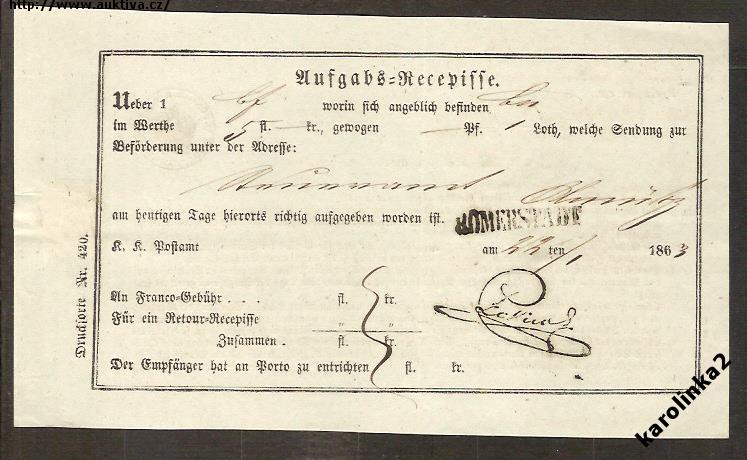 http://www.auktiva.cz/
Aufgabs=Recepisse.
Ueber 1 Bf worin sich angeblich befinden Bn
im Werthe 5 fl. — kr., gewogen — Pf. 1 Loth, welche Sendung zur
Beförderung unter der Adresse:
Steueramt Olmütz
am heutigen Tage hierorts richtig aufgegeben worden ist. RÖMERSTADT
K. K. Postamt am 22 ten /1 1863
An Franco=Gebühr . . . fl. 5 kr.
Für ein Retour=Recepisse " "
Zusammen . fl. kr.
Der Empfänger hat an Porto zu entrichten fl. kr.
Drucksorte Nr. 420.
karolinka2